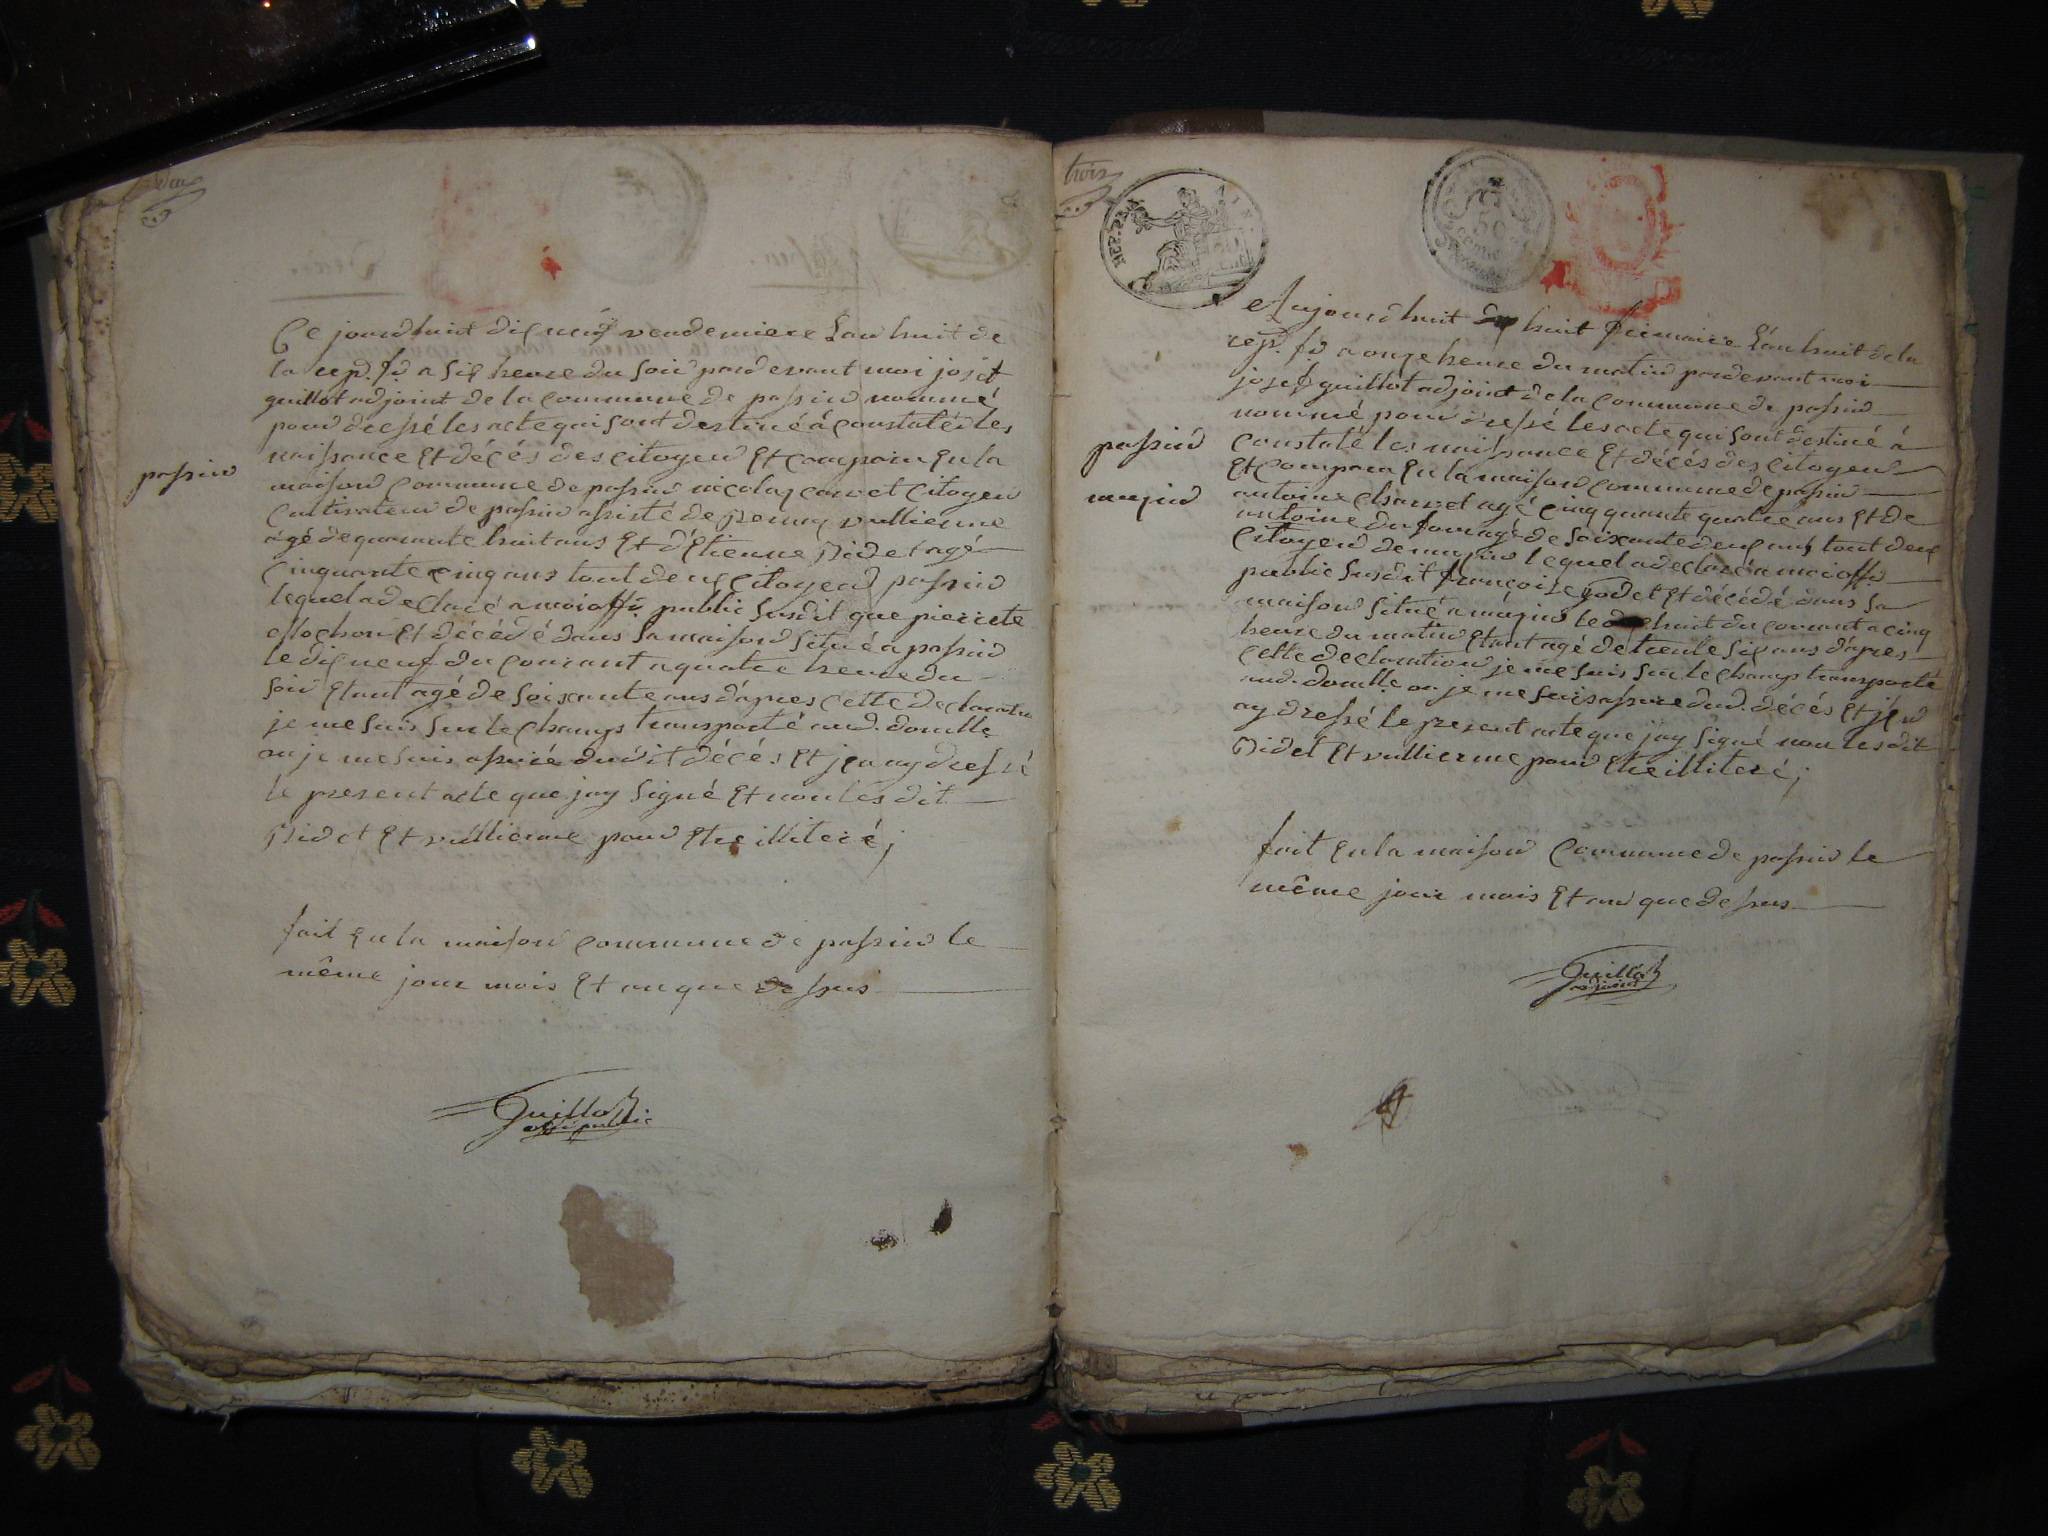 passin
Ce jourdhuit dix neuf vendemiere Lan huit de
la rep. fs a six heure du soir pardevant moi josept
guillot adjoint de la commune de passin nommé
pour dressé les acte qui sont destiné à constaté les
naissance Et décés des citoyen Et comparu En la
maison commune de passin nicolas carret citoyen
cultivateur de passin assisté de vullierme
agé de quarante huit ans Et d'Etienne Bidet agé
cinquante cinq ans tout deux citoyen passin
lequel a declaré a moi offi. public susdit que pierrete
Et décédé dans sa maison situé a passin
le dix neuf du courant a quatre heure du
soir Etant agé de soixante ans d'apres cette declaration
je me suis sur le champs transporté aud. domille
ou je me suis assuré dudit décés Et jen ay dressé
le present acte que jay signé Et non les dit
Bidet Et vullierme pour Etre illiteré ;
fait En la maison commune de passin le
même jour mois Et an que dessus
Guillot
offi public
trois
50
passin
mujin
Aujourdhuit huit frimaire L'an huit de la
rep. fs a onze heure du matin pardevant moi
josept guillot adjoint de la commune de passin
nommé pour dressé les acte qui sont destiné à
constaté les naissance Et décés des citoyen
Et comparu En la maison commune de passin
antoine charvet agé cinqquante quatre ans Et de
antoine dufour agé de soixante deux ans tout deux
citoyen de mujin lequel a declaré a moi offi
public susdit françoise godet Et décédé dans sa
maison situé a mujin le huit du courant a cinq
heure du matin Etant agé de trente six ans d'apres
cette declaration je me suis sur le champs transporté
aud. domille ou je me suis assuré dud. décés Et jen
ay dressé le present acte que jay signé non les dit
Bidet Et vullierme pour Etre illiteré ;
fait En la maison commune de passin le
même jour mois Et an que dessus
Guillot
adjoint